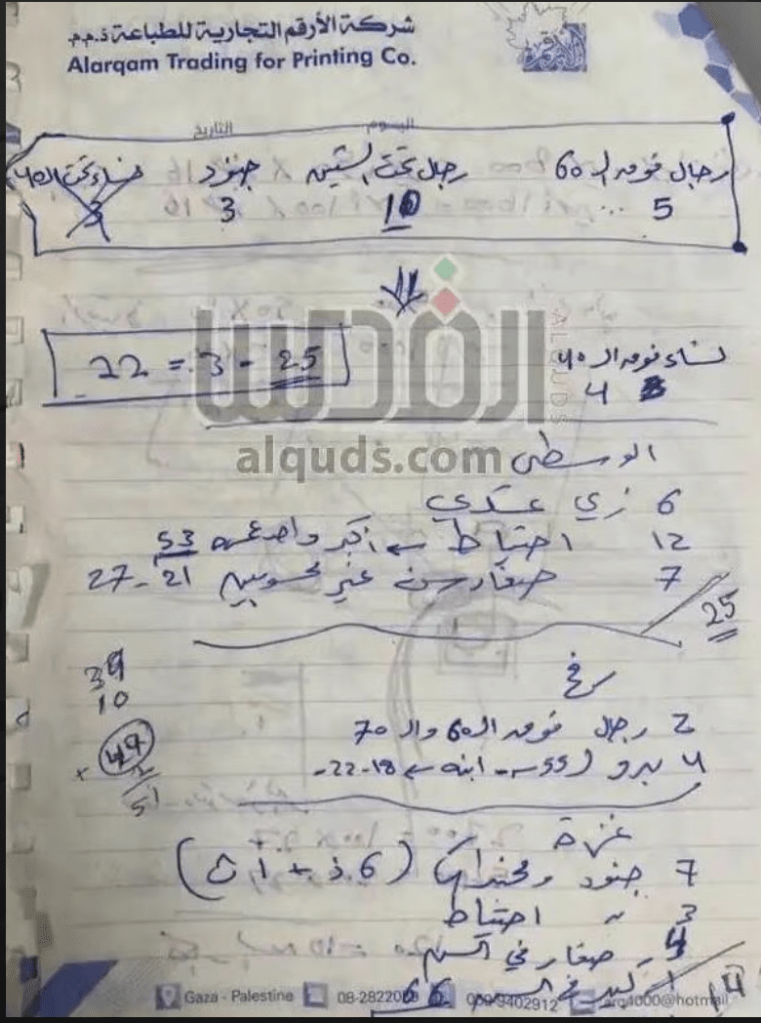 شركة الأرقم التجارية للطباعة ذ.م.م
Alarqam Trading for Printing Co.
اليوم التاريخ
رجال فوق الـ 60 رجال تحت الستين جنود نساء تحت الـ 40
5 10 3 3
نساء فوق الـ 40
4
25 - 3 = 22
القدس
ALQUDS
alquds.com
الوسطى
6 زي عسكري
12 احتياط ← أكبر واحد عمره 53
7 صغار سن غير محسوبين 21 - 27
25
39
10
49
51
رفح
2 رجال فوق الـ 60 والـ 70
4 بدو (55 ← ابنه ← 18 - 22 -
غزة
7 جنود ومجندات (6 ذ + 1 ث)
3 " احتياط
4 - صغار في السن
1 كبير في السن 66
14
Gaza - Palestine 08-2822 9402912 arq4000@hotmail